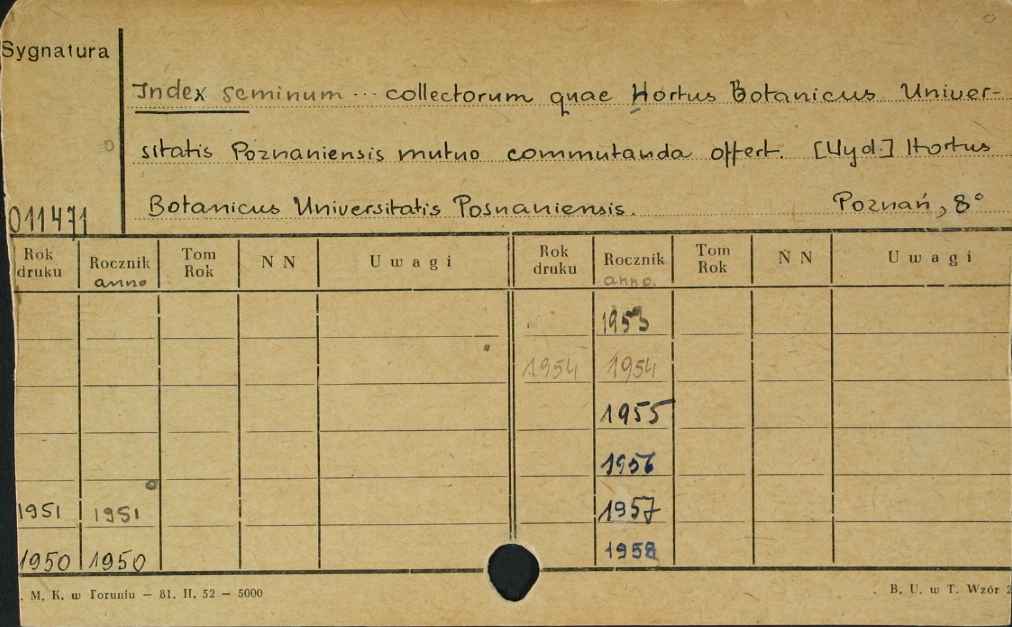 Sygnatura
Index seminum ... collectorum quae Hortus Botanicus Univer-
sitatis Poznaniensis mutuo commutanda offert. [Wyd.] Hortus
Botanicus Universitatis Posnaniensis. Poznań, 8°
011471
Rok druku Rocznik anno Tom Rok N N Uwagi Rok druku Rocznik anno. Tom Rok N N Uwagi
1953
1954 1954
1955
1956
1951 1951 1957
1950 1950 1958
. M. K. w Toruniu — 81. II. 52 — 5000 B. U. w T. Wzór 2